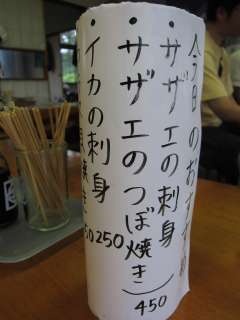 今日のおすすめ
サザエの刺身
サザエのつぼ焼き
450
イカの刺身
250
焼き
50